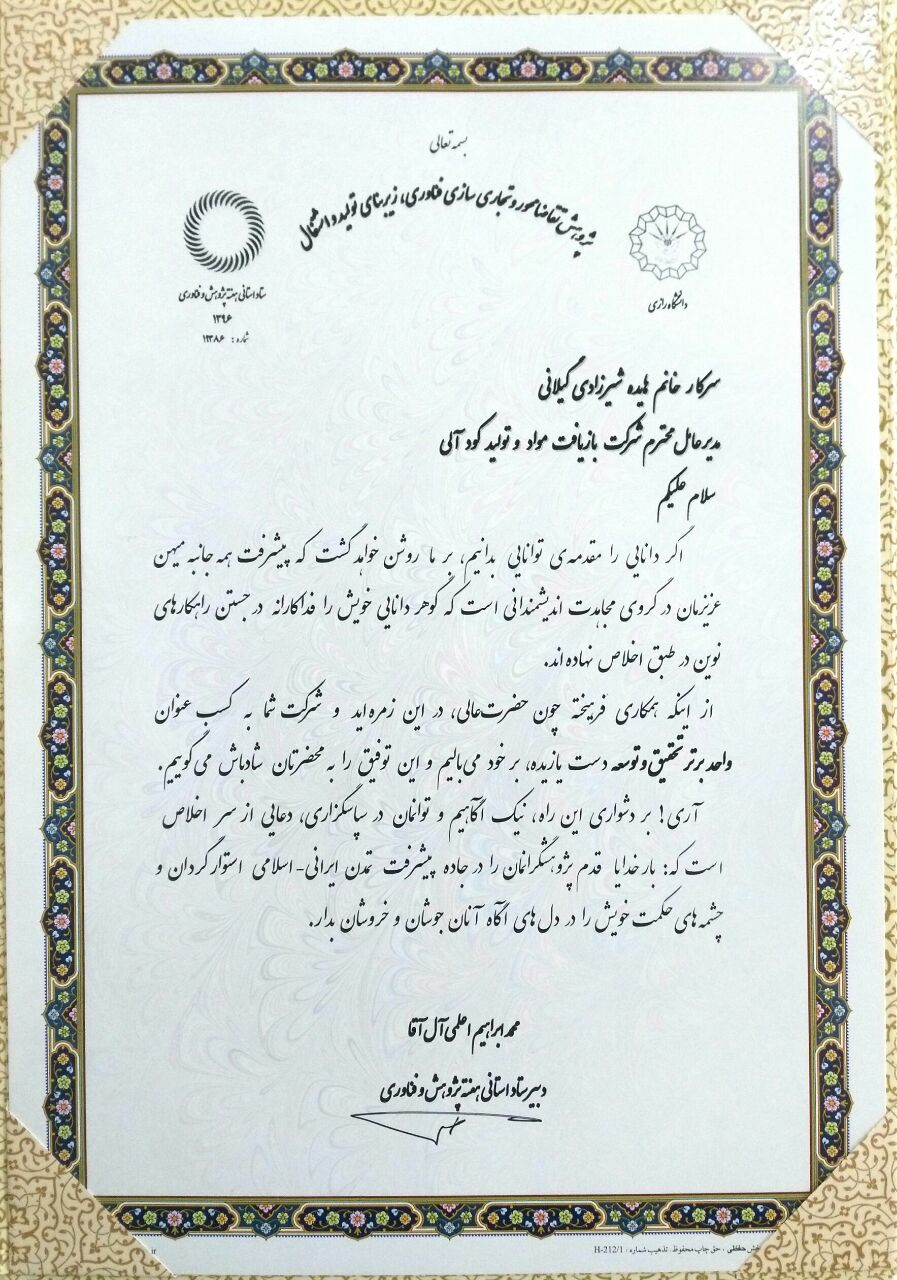 بسمه تعالی
پژوهش تقاضا محور و تجاری سازی فناوری، زیربنای تولید و اشتغال
دانشگاه رازی
ستاد استانی هفته پژوهش و فناوری
۱۳۹۶
شماره: ۱۹۳۸۶
سرکار خانم هایده شیرزادی گیلانی
مدیر عامل محترم شرکت بازیافت مواد و تولید کود آلی
سلام علیکم
اگر دانایی را مقدمه‌ی توانایی بدانیم، بر ما روشن خواهد گشت که پیشرفت همه جانبه میهن
عزیزمان در گروی مجاهدت اندیشمندانی است که گوهر دانایی خویش را فداکارانه در جستن راهکارهای
نوین در طبق اخلاص نهاده‌اند.
از اینکه همکاری فرهیخته چون حضرت‌عالی، در این زمره‌اید و شرکت شما به کسب عنوان
واحد برتر تحقیق و توسعه دست یازیده، بر خود می‌بالیم و این توفیق را به محضرتان شادباش می‌گوییم.
آری! بر دشواری این راه، نیک آگاهیم و توانمان در سپاسگزاری، دعایی از سر اخلاص
است که: بار خدایا قدم پژوهشگرانمان را در جاده پیشرفت تمدن ایرانی-اسلامی استوار گردان و
چشمه‌های حکمت خویش را در دل‌های آگاه آنان جوشان و خروشان بدار.
محمد ابراهیم اعلمی آل آقا
دبیر ستاد استانی هفته پژوهش و فناوری
حق چاپ محفوظ. تذهیب شماره: H-212/1
ir